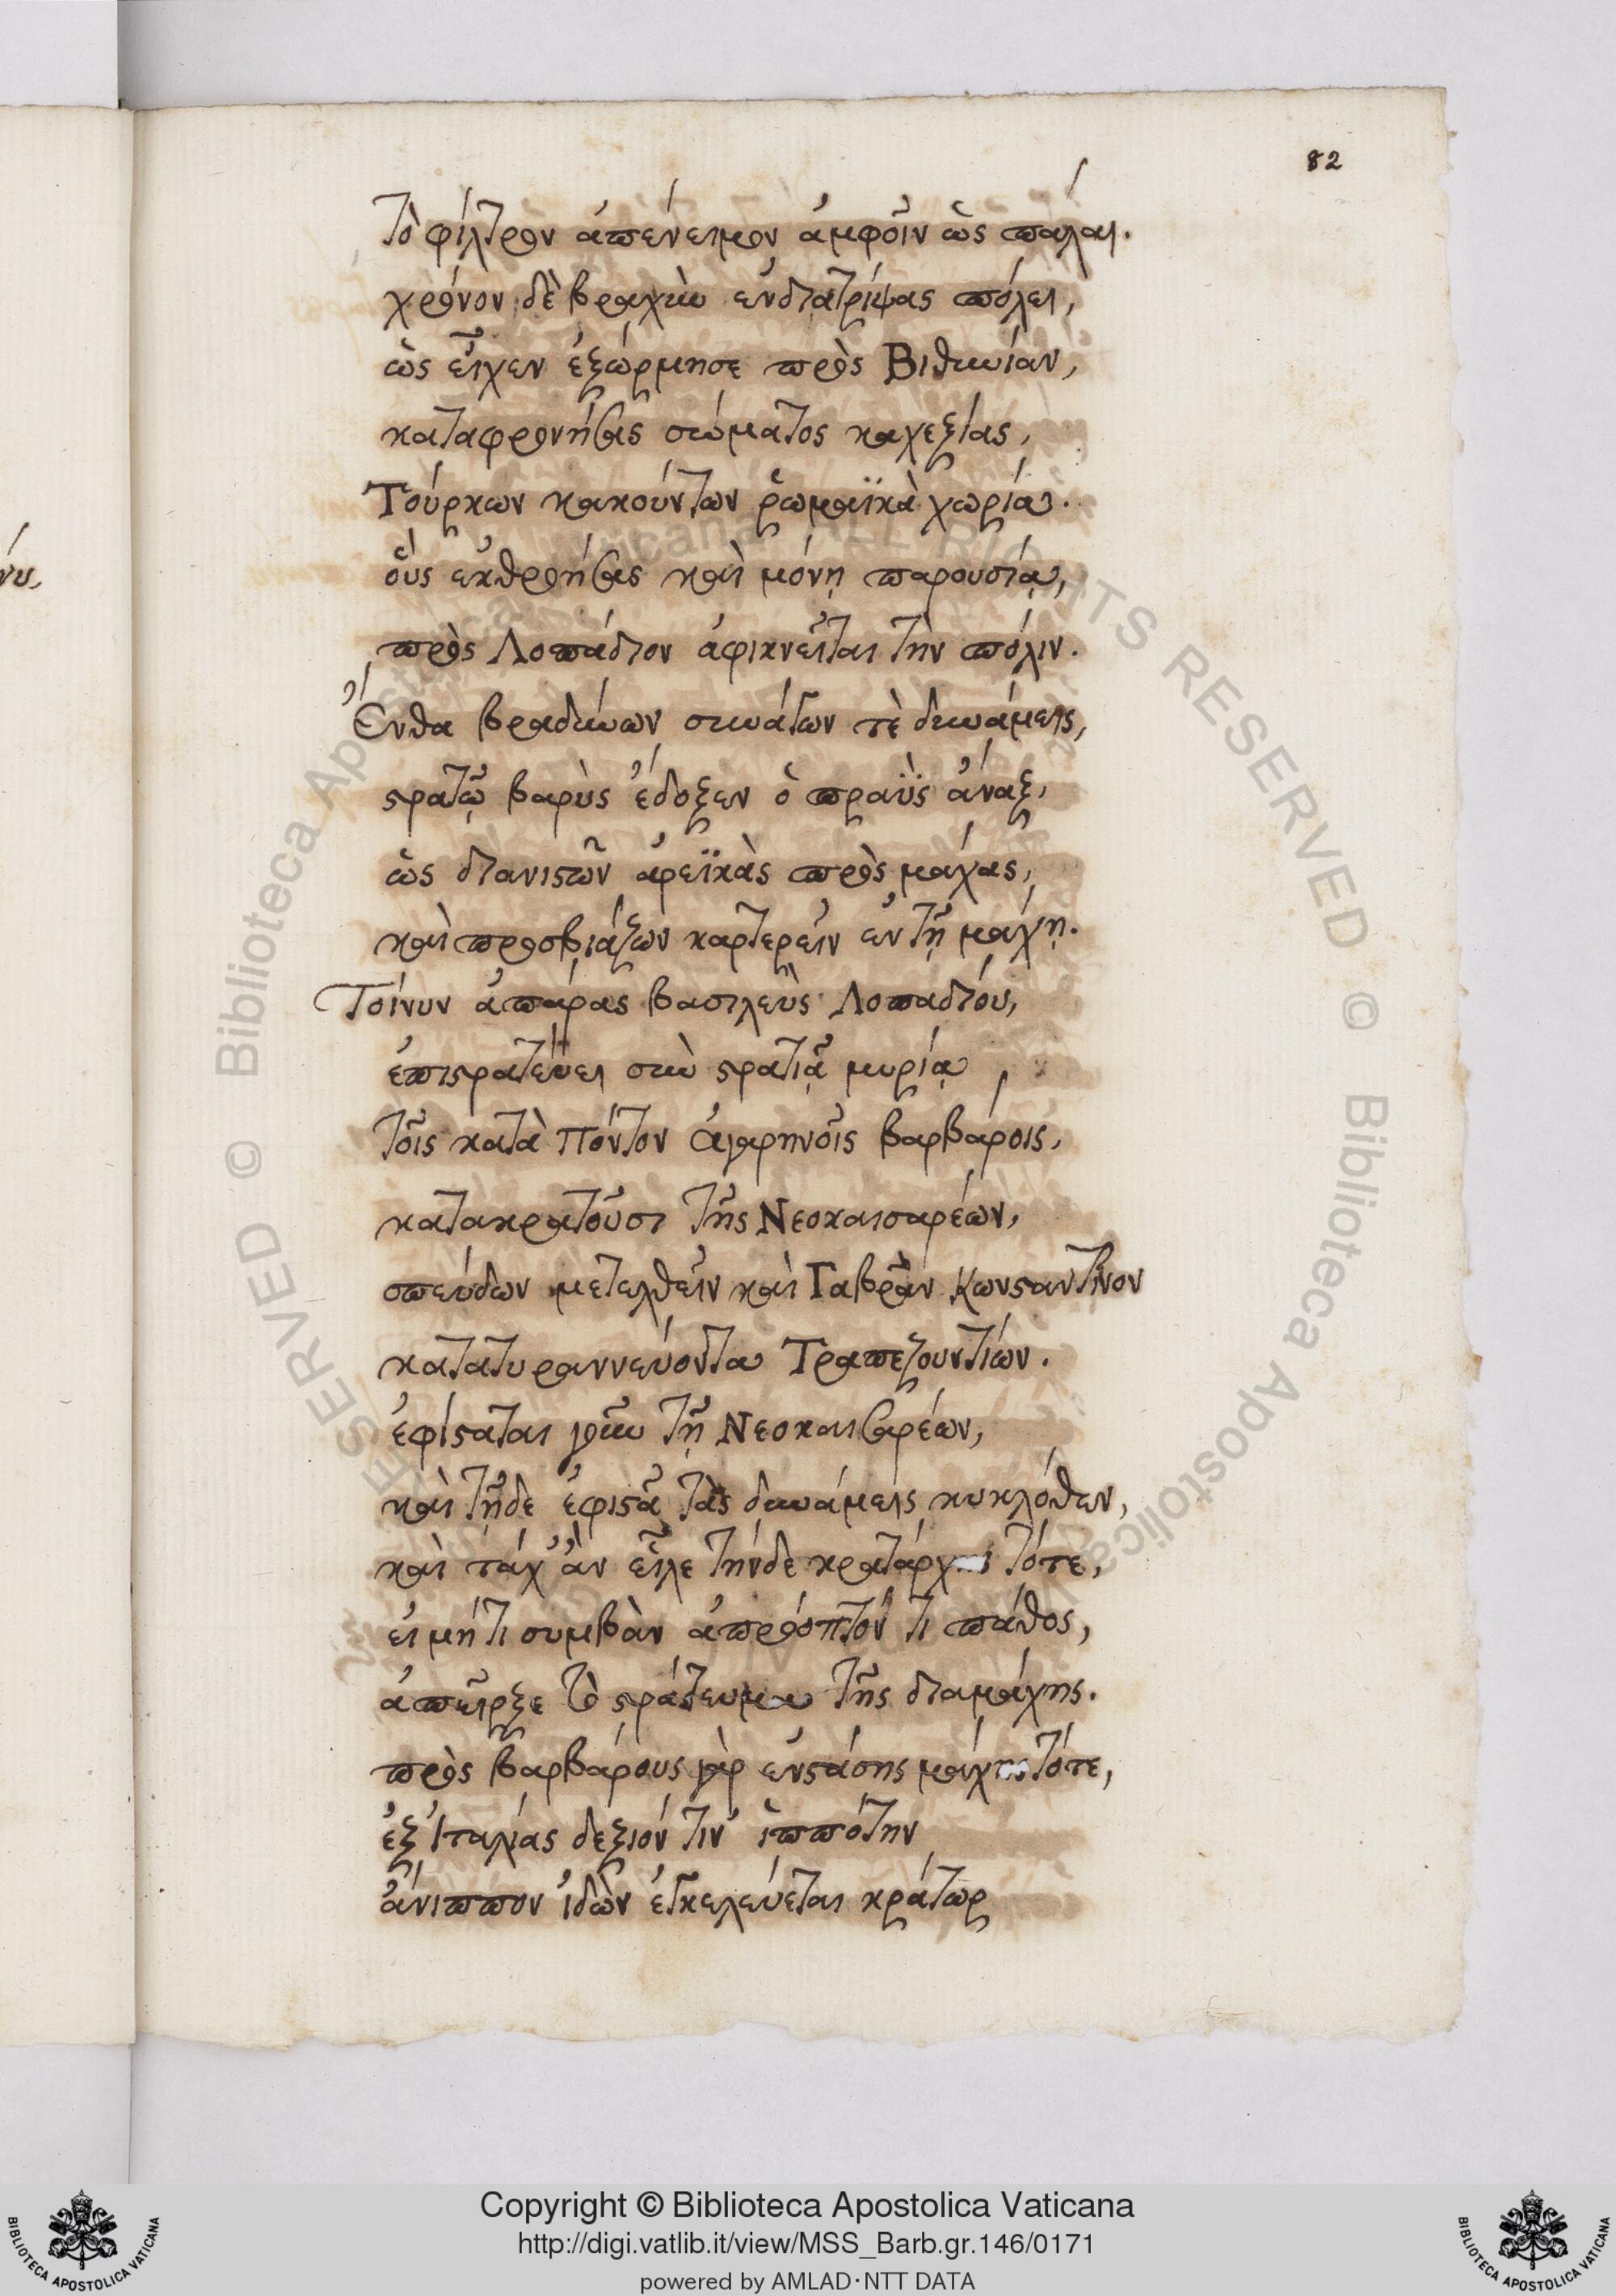 82
Τὸ φίλτρον ἀπένειμον ἀμφοῖν ὡς πάλαι.
χρόνον δὲ βραχὺν ἐνδιατρίψας πόλει,
ὡς εἶχεν ἐξώρμησε πρὸς Βιθυνίαν,
καταφρονήσας σώματος καχεξίας,
Τούρκων κακούντων ῥωμαϊκὰ χωρία.
οὓς ἐκθροήσας καὶ μόνῃ παρουσίᾳ,
πρὸς Λοπάδιον ἀφικνεῖται τὴν πόλιν.
Ἔνθα βραδύνων συνάγων τὲ δυνάμεις,
στρατῷ βαρὺς ἔδοξεν ὁ πραῢς ἄναξ,
ὡς διανιστῶν ἀρεϊκὰς πρὸς μάχας,
καὶ προσβιάζων καρτερεῖν ἐν τῇ μάχῃ.
Τοίνυν ἀπάρας βασιλεὺς Λοπαδίου,
ἐπιστρατεύει σὺν στρατιᾷ μυρίᾳ
τοῖς κατὰ Πόντον ἀγαρηνοῖς βαρβάροις,
κατακρατοῦσι τῆς Νεοκαισαρέων,
σπεύδων μετελθεῖν καὶ Γαβρᾶν Κωνσταντῖνον
κατατυραννεύοντα Τραπεζουντίων.
ἐφίσταται γοῦν τῇ Νεοκαισαρέων,
καὶ τῇδε ἐφιστᾷ τὰς δυνάμεις κυκλόθεν,
καὶ τάχ' ἂν εἷλε τήνδε κρατάρχης τότε,
εἰ μή τι συμβὰν ἀπρόοπτόν τι πάθος,
ἀπεῖρξε τὸ στράτευμα τῆς διαμάχης.
πρὸς βαρβάρους γὰρ ἐνστάσης μάχης τότε,
ἐξ Ἰταλίας δεξιόν τιν' ἱππότην
ἄνιππον ἰδὼν ἐγκελεύεται κράτωρ
Copyright © Biblioteca Apostolica Vaticana
http://digi.vatlib.it/view/MSS_Barb.gr.146/0171
powered by AMLAD·NTT DATA
BIBLIOTECA APOSTOLICA VATICANA
BIBLIOTECA APOSTOLICA VATICANA